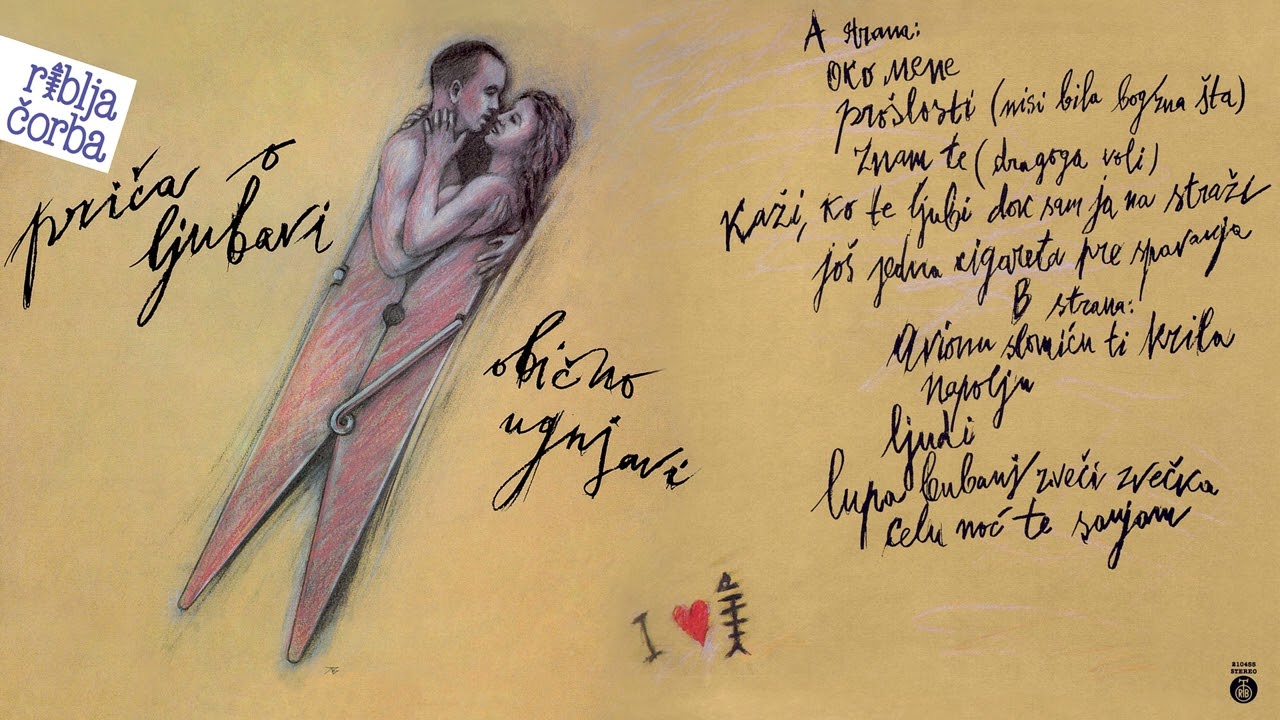 riblja
čorba
priča o
ljubavi
obično
ugnjavi
A strana:
oko mene
prošlosti (nisi bila bogzna šta)
znam te (dragoga voli)
Kaži, ko te ljubi dok sam ja na straži
još jedna cigareta pre spavanja
B strana:
Avionu slomiću ti krila
napolju
ljudi
lupa bubanj zveči zvečka
celu noć te sanjam
I
210455
STEREO
RTB